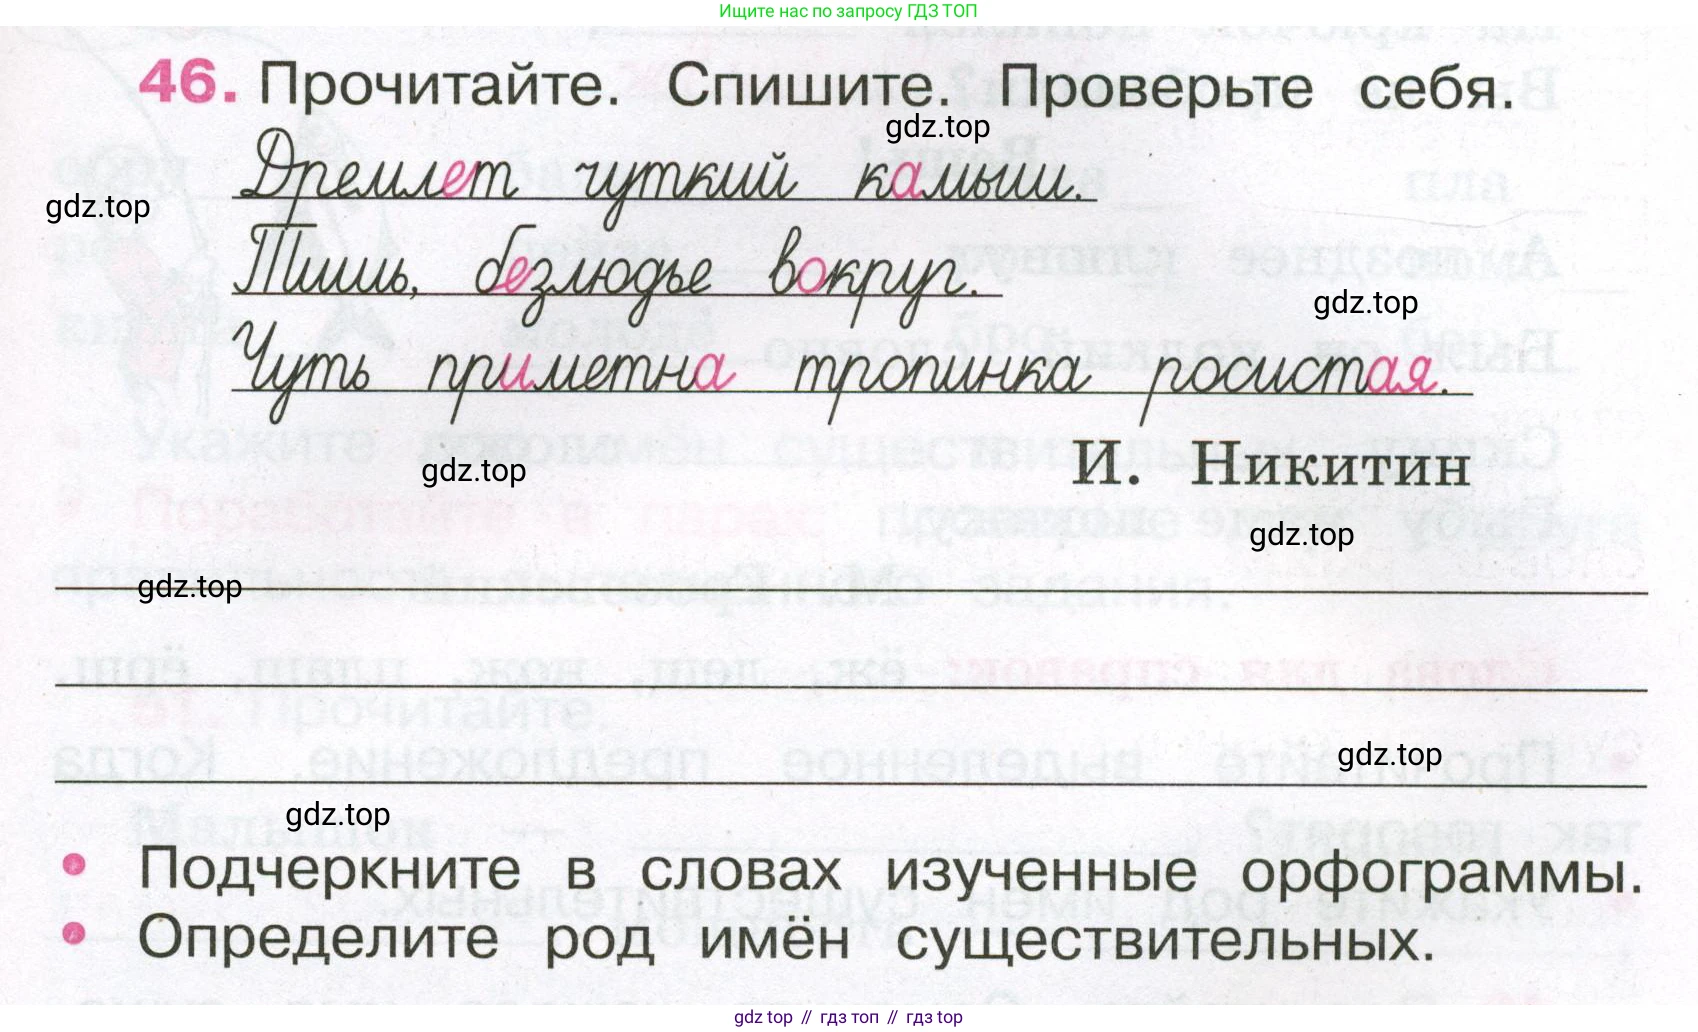 Ищите нас по запросу ГДЗ ТОП
46. Прочитайте. Спишите. Проверьте себя.
gdz.top
Дремлет чуткий камыш.
gdz.top
Тишь, безлюдье вокруг.
gdz.top
Чуть приметна тропинка росистая.
gdz.top
И. Никитин
gdz.top
gdz.top
gdz.top
gdz.top
• Подчеркните в словах изученные орфограммы.
• Определите род имён существительных.
gdz.top // гдз топ // гдз top